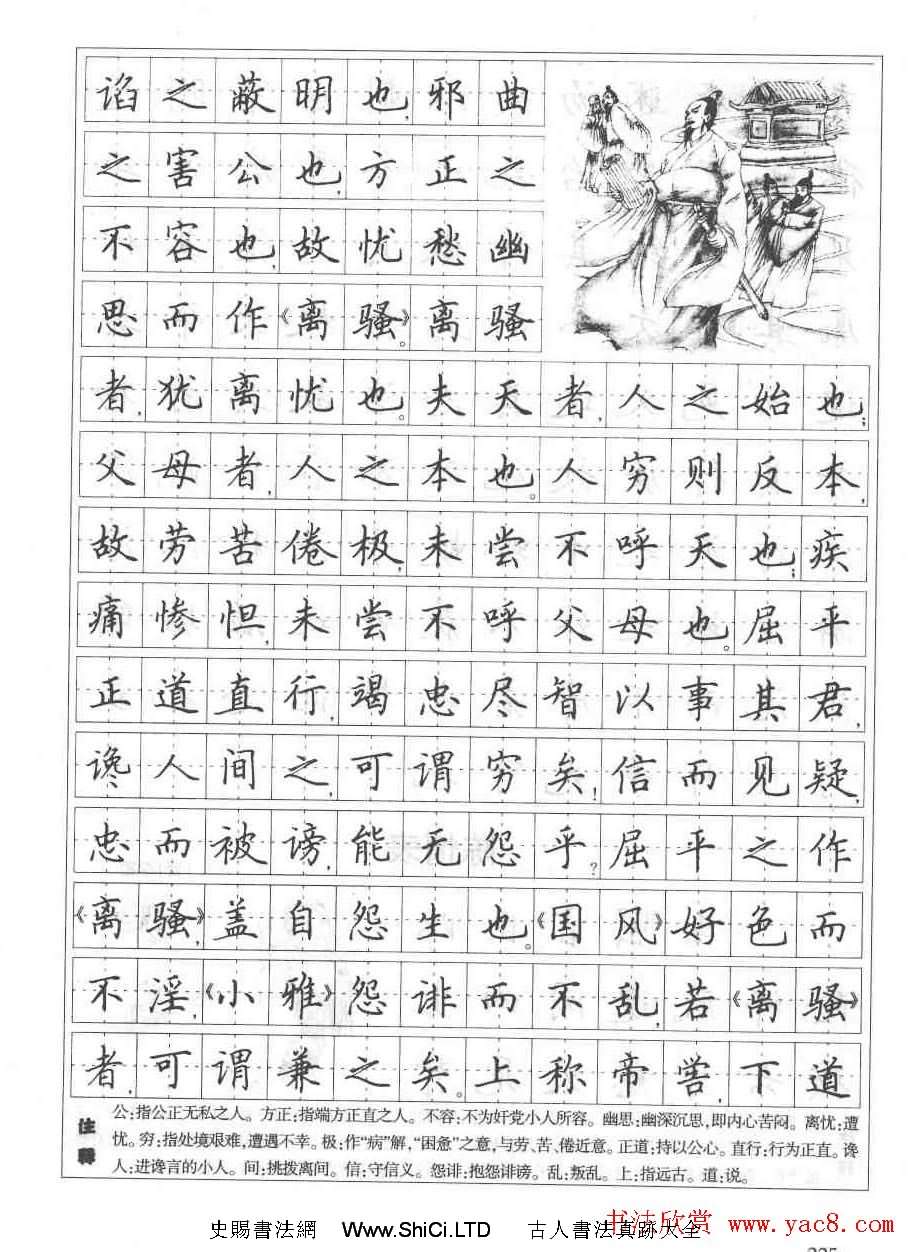 谄之蔽明也,邪曲
之害公也,方正之
不容也,故忧愁幽
思而作《离骚》。离骚
者,犹离忧也。夫天者,人之始也;
父母者,人之本也。人穷则反本,
故劳苦倦极,未尝不呼天也;疾
痛惨怛,未尝不呼父母也。屈平
正道直行,竭忠尽智以事其君,
谗人间之,可谓穷矣!信而见疑,
忠而被谤,能无怨乎?屈平之作
《离骚》,盖自怨生也。《国风》好色而
不淫,《小雅》怨诽而不乱,若《离骚》
者,可谓兼之矣。上称帝喾,下道
注释
公:指公正无私之人。方正:指端方正直之人。不容:不为奸党小人所容。幽思:幽深沉思,即内心苦闷。离忧:遭
忧。穷:指处境艰难,遭遇不幸。极:作“病”解,“困惫”之意,与劳、苦、倦近意。正道:持以公心。直行:行为正直。谗
人:进谗言的小人。间:挑拨离间。信:守信义。怨诽:抱怨诽谤。乱:叛乱。上:指远古。道:说。
史賜書法網 Www.ShiCi.LTD 古人書法真跡大全
书法欣赏 www.yac8.com